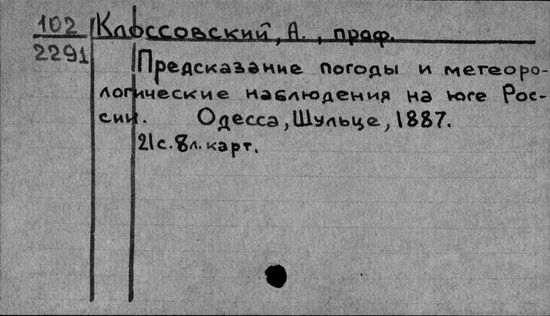 102 Клоссовский, А., проф.
2291 Предсказание погоды и метеоро-
логические наблюдения на юге Рос-
сии. Одесса, Шульце, 1887.
21с. 8л. карт.